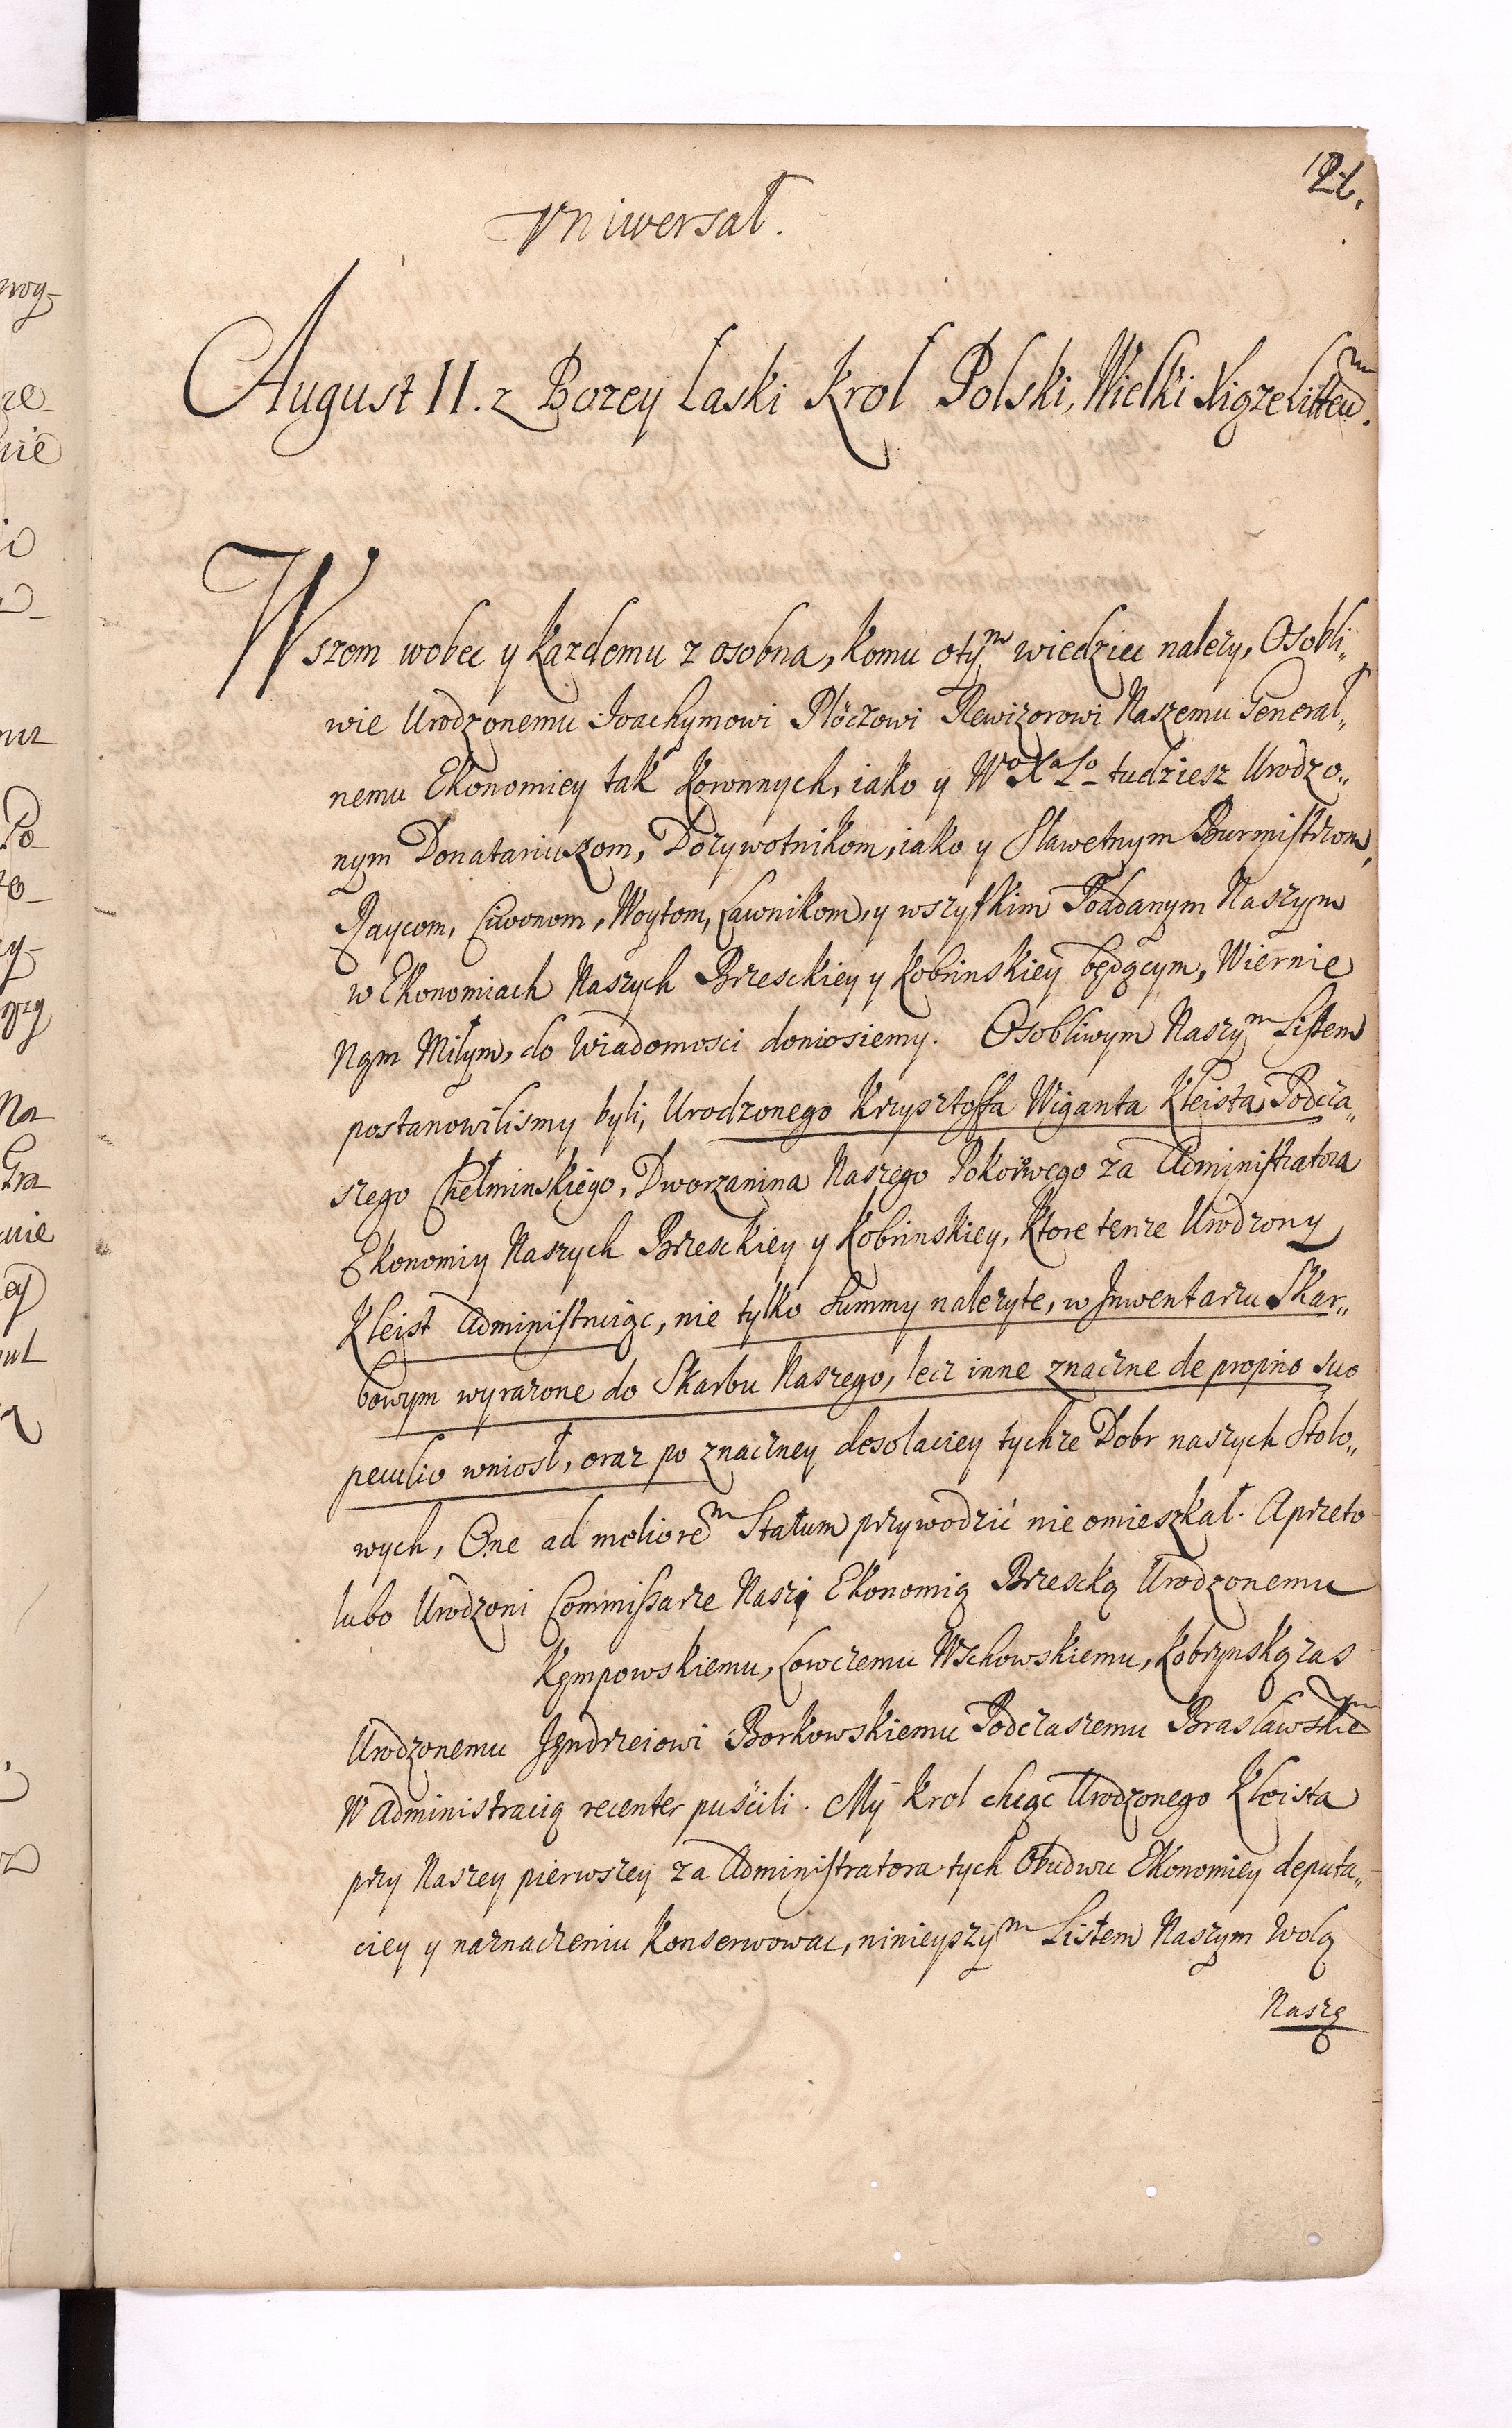 Vniwersał.
August II. z Bozey Laski Krol Polski, Wielki Xiąze Litteu.
Wszem wobec y kazdemu z osobna, komu otym wiedziec nalezy, Osobli„
wie Urodzonemu Joachymowi Plöczowi Rewizorowi Naszemu General„
nemu Ekonomiey tak koronnych, iako y Wo Xa Lo tudziesz Urodzo„
nym Donatariuszom, Dozywotnikom, iako y Sławetnym Burmistrzom,
Raycom, Ciwonom, Woytom, Ławnikom, y wszytkim Poddanym Naszym
w Ekonomiach Naszych Brzesckiey y Kobrinskiey będącym, Wiernie
Nąm Miłym, do Wiadomosci doniosiemy. Osobliwym Naszym Listem
postanowilismy byli, Urodzonego Krzysztoffa Wiganta Kleista, Podcza„
szego Chełminskiego, Dworzanina Naszego Pokoiowego za Administratora
Ekonomiy Naszych Brzesckiey y Kobrinskiey, Ktore tenze Urodzony
Kleist Administruiąc, nie tylko Summy nalezyte, w Jnwentarzu Skar„
bowym wyrazone do Skarbu Naszego, lecz inne znaczne de proprio suo
peculio wniosł, oraz po znaczney desolaciey tychze Dobr naszych Stolo„
wych, One ad meliorem Statum przywodzić nie omieszkał. A przeto
lubo Urodzoni Commissarze Naszi Ekonomią Brzescką Urodzonemu
Kąmpowskiemu, Łowczemu Wschowskiemu, Kobrynską zas
Urodzonemu Jądrzeiowi Borkowskiemu Podczaszemu Brasławskiem
W Administracią recenter puścili. My Krol chcąc Urodzonego Kleista
przy Naszey pierwszey za Administratora tych Obudwu Ekonomiey deputa„
ciey y naznaczeniu konserwowac, ninieyszym Listem Naszym Wolą
Naszą